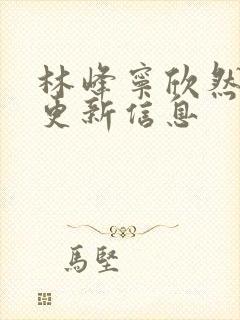 林峰寧欣然
更新信息
馬堅